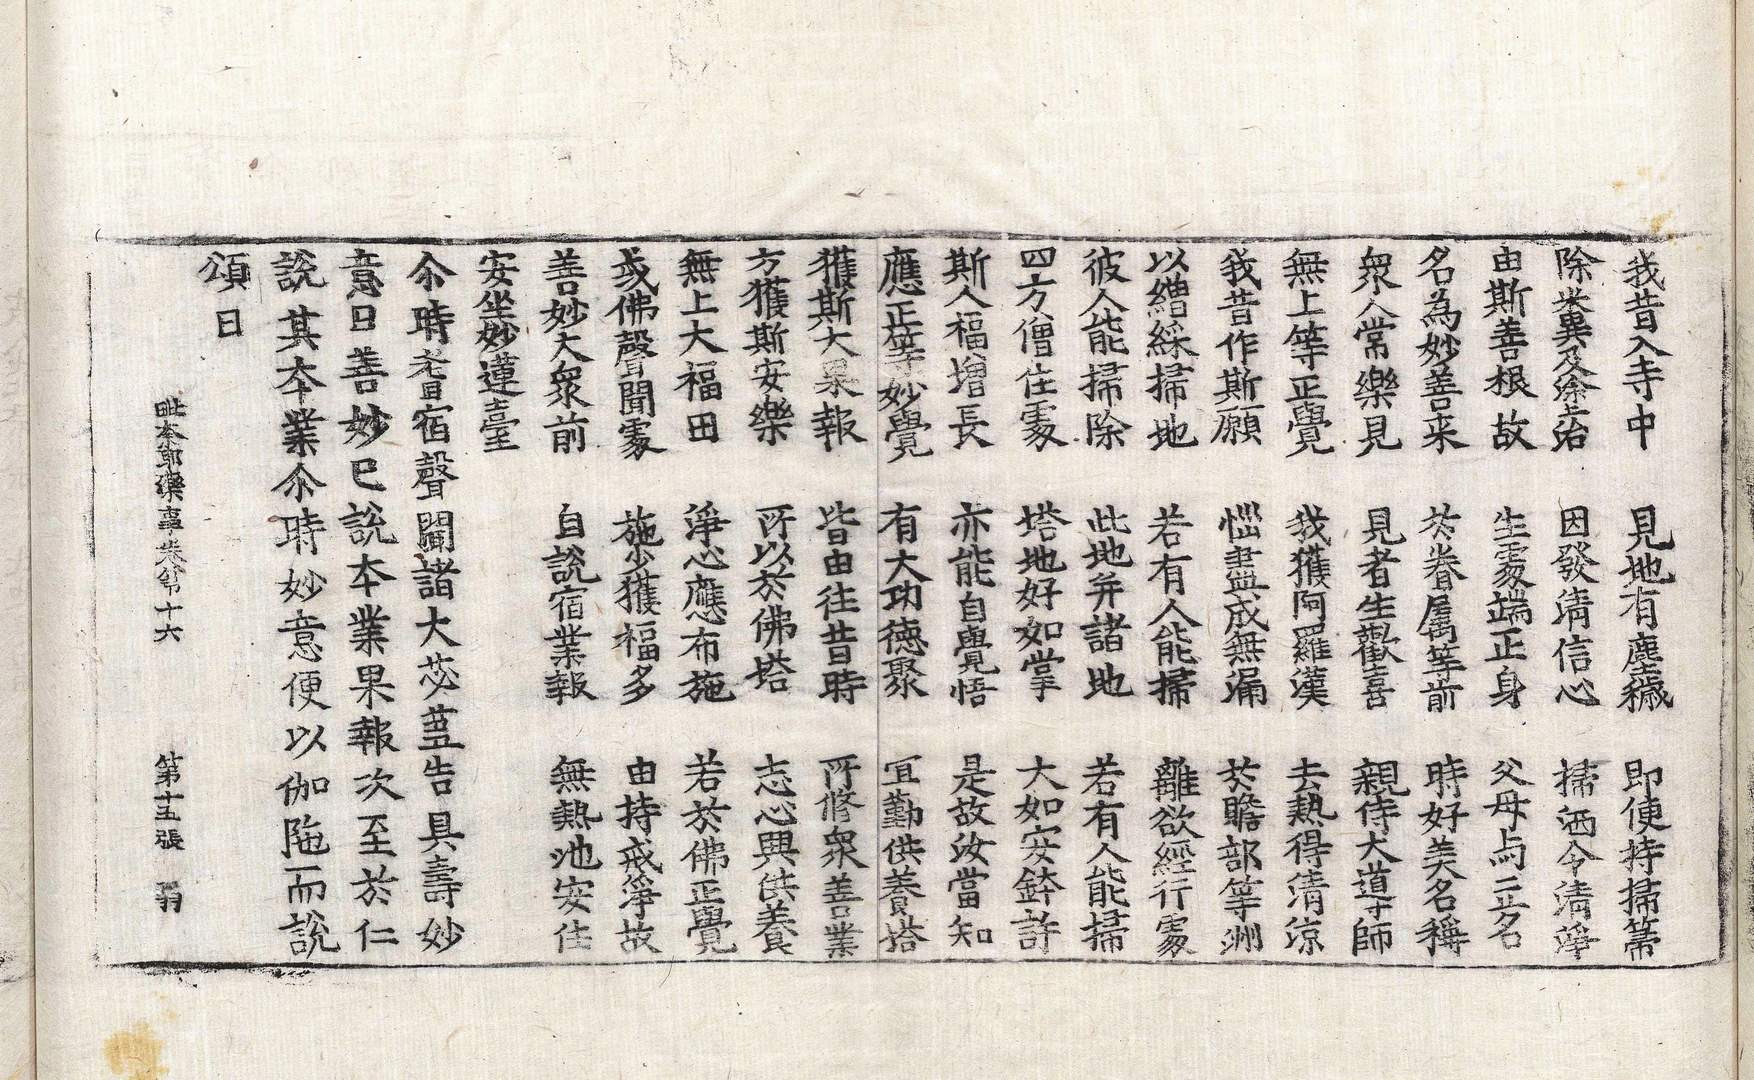 我昔入寺中　見地有塵穢　即便持掃箒
除糞及塗治　因發清信心　掃洒令清淨
由斯善根故　生處端正身　父母与立名
名為妙善来　於眷屬等前　時好美名稱
衆人常樂見　見者生歡喜　親侍大導師
無上等正覺　我獲阿羅漢　去熱得清涼
我昔作斯願　惱盡成無漏　於贍部等洲
以繒綵掃地　若有人能掃　離欲經行處
彼人能掃除　此地并諸地　若有人能掃
四方僧住處　塔地好如掌　大如安鉢許
斯人福增長　亦能自覺悟　是故汝當知
應正等妙覺　有大功德聚　宜勤供養塔
獲斯大果報　皆由往昔時　所修衆善業
方獲斯安樂　所以於佛塔　志心興供養
無上大福田　淨心應布施　若於佛正覺
或佛聲聞處　施少獲福多　由持戒淨故
善妙大衆前　自說宿業報　無熱池安住
安坐妙蓮臺
尒時耆宿聲聞諸大苾芻告具壽妙
意曰善妙已說本業果報次至於仁
說其本業尒時妙意便以伽陁而說
頌曰
毗奈耶藥事卷第十六　第十五張